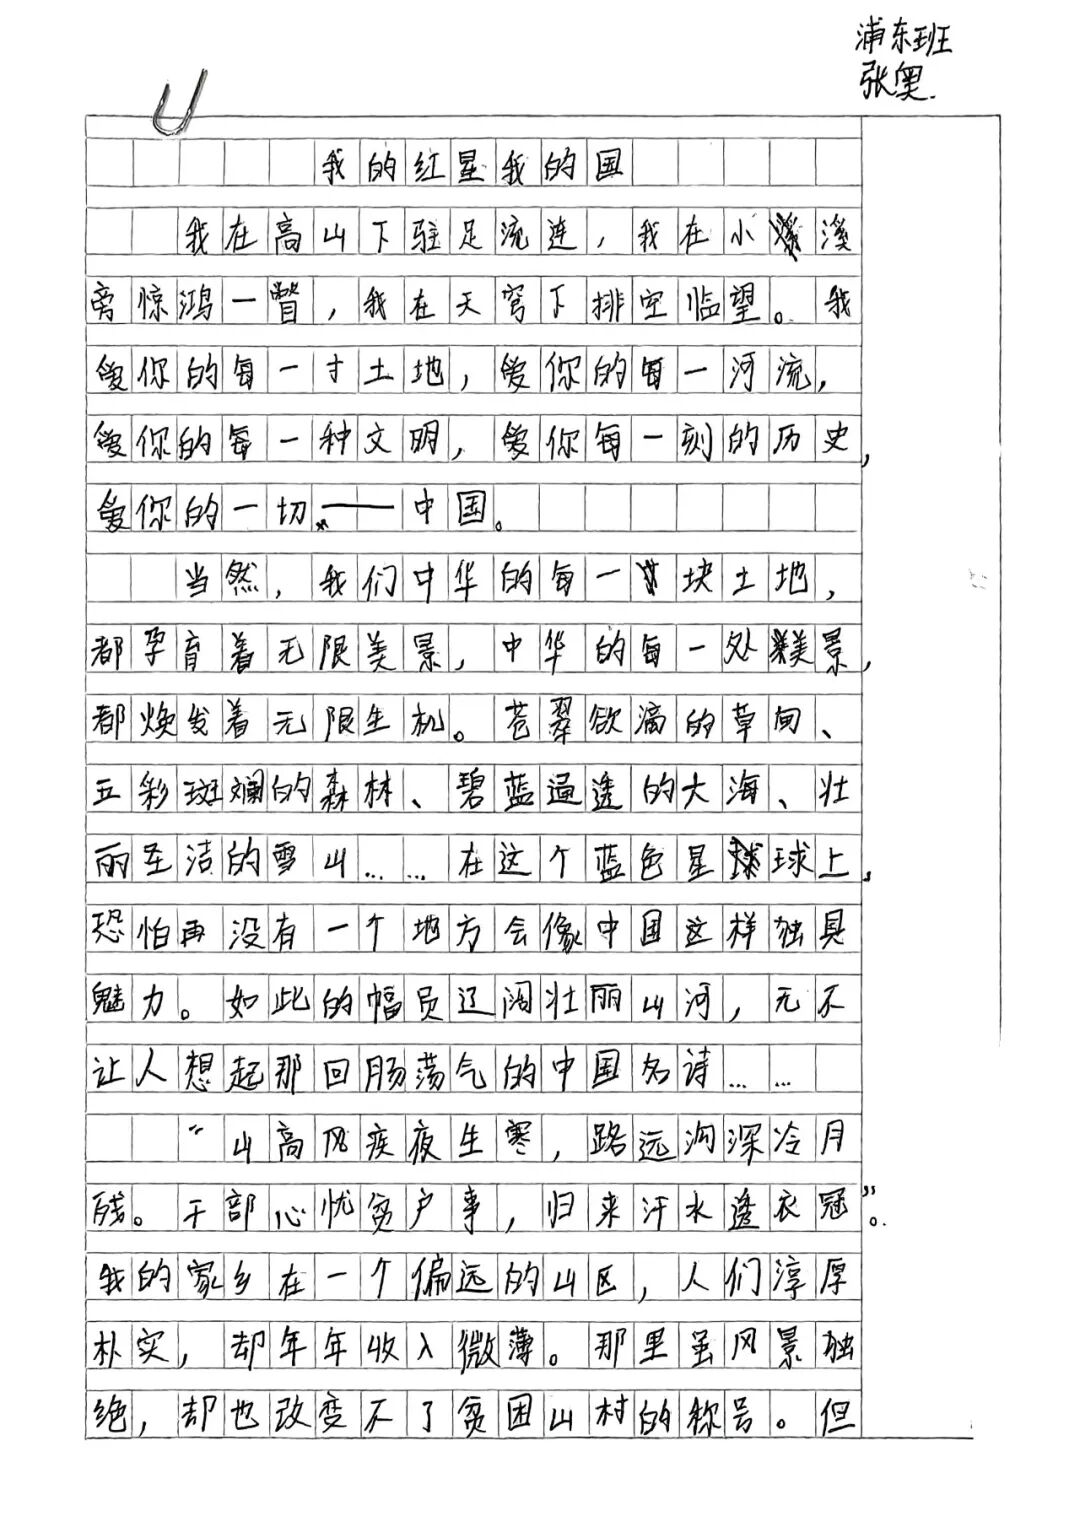 浦东班
张奥.
我的红星我的国
我在高山下驻足流连，我在小溪
旁惊鸿一瞥，我在天穹下排空临望。我
爱你的每一寸土地，爱你的每一河流，
爱你的每一种文明，爱你每一刻的历史，
爱你的一切——中国。
当然，我们中华的每一块土地，
都孕育着无限美景，中华的每一处美景，
都焕发着无限生机。苍翠欲滴的草甸、
五彩斑斓的森林、碧蓝通透的大海、壮
丽圣洁的雪山……在这个蓝色星球上，
恐怕再没有一个地方会像中国这样独具
魅力。如此的幅员辽阔壮丽山河，无不
让人想起那回肠荡气的中国名诗……
“山高风疾夜生寒，路远沟深冷月
残。干部心忧贫户事，归来汗水透衣冠”。
我的家乡在一个偏远的山区，人们淳厚
朴实，却年年收入微薄。那里虽风景独
绝，却也改变不了贫困山村的称号。但